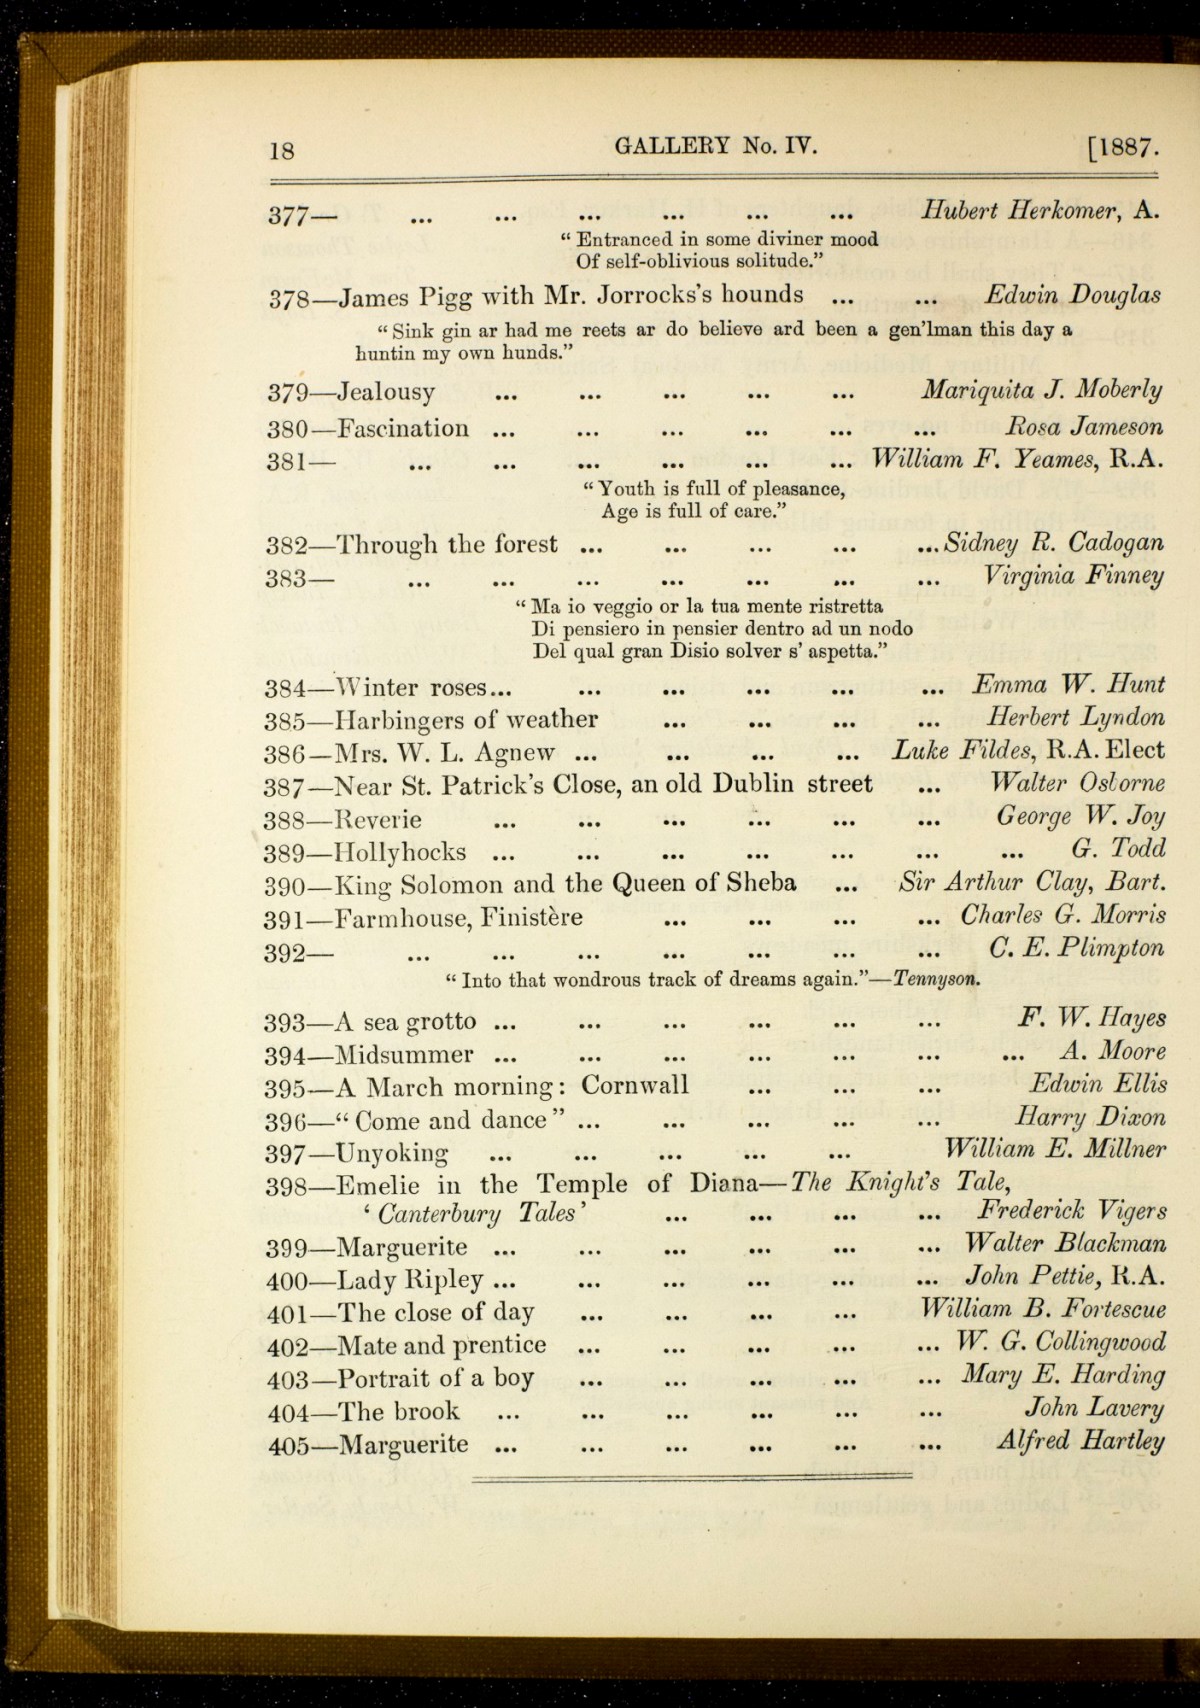 18 GALLERY No. IV. [1887.
377— ... ... ... ... ... ... Hubert Herkomer, A.
“ Entranced in some diviner mood
Of self-oblivious solitude.”
378—James Pigg with Mr. Jorrocks's hounds ... ... Edwin Douglas
“ Sink gin ar had me reets ar do believe ard been a gen'lman this day a
huntin my own hunds.”
379—Jealousy ... ... ... ... ... Mariquita J. Moberly
380—Fascination ... ... ... ... ... ... Rosa Jameson
381— ... ... ... ... ... ... William F. Yeames, R.A.
“ Youth is full of pleasance,
Age is full of care.”
382—Through the forest ... ... ... ... ... Sidney R. Cadogan
383— ... ... ... ... ... ... ... Virginia Finney
“ Ma io veggio or la tua mente ristretta
Di pensiero in pensier dentro ad un nodo
Del qual gran Disio solver s' aspetta.”
384—Winter roses... ... ... ... ... ... Emma W. Hunt
385—Harbingers of weather ... ... ... ... Herbert Lyndon
386—Mrs. W. L. Agnew ... ... ... ... Luke Fildes, R.A. Elect
387—Near St. Patrick's Close, an old Dublin street ... Walter Osborne
388—Reverie ... ... ... ... ... ... George W. Joy
389—Hollyhocks ... ... ... ... ... ... ... G. Todd
390—King Solomon and the Queen of Sheba ... Sir Arthur Clay, Bart.
391—Farmhouse, Finistère ... ... ... ... Charles G. Morris
392— ... ... ... ... ... ... ... C. E. Plimpton
“ Into that wondrous track of dreams again.”—Tennyson.
393—A sea grotto ... ... ... ... ... ... F. W. Hayes
394—Midsummer ... ... ... ... ... ... ... A. Moore
395—A March morning: Cornwall ... ... ... Edwin Ellis
396—“ Come and dance ” ... ... ... ... ... Harry Dixon
397—Unyoking ... ... ... ... ... William E. Millner
398—Emelie in the Temple of Diana—The Knight's Tale,
‘ Canterbury Tales’ ... ... ... ... Frederick Vigers
399—Marguerite ... ... ... ... ... ... Walter Blackman
400—Lady Ripley ... ... ... ... ... ... John Pettie, R.A.
401—The close of day ... ... ... ... William B. Fortescue
402—Mate and prentice ... ... ... ... ... W. G. Collingwood
403—Portrait of a boy ... ... ... ... ... Mary E. Harding
404—The brook ... ... ... ... ... ... John Lavery
405—Marguerite ... ... ... ... ... ... Alfred Hartley